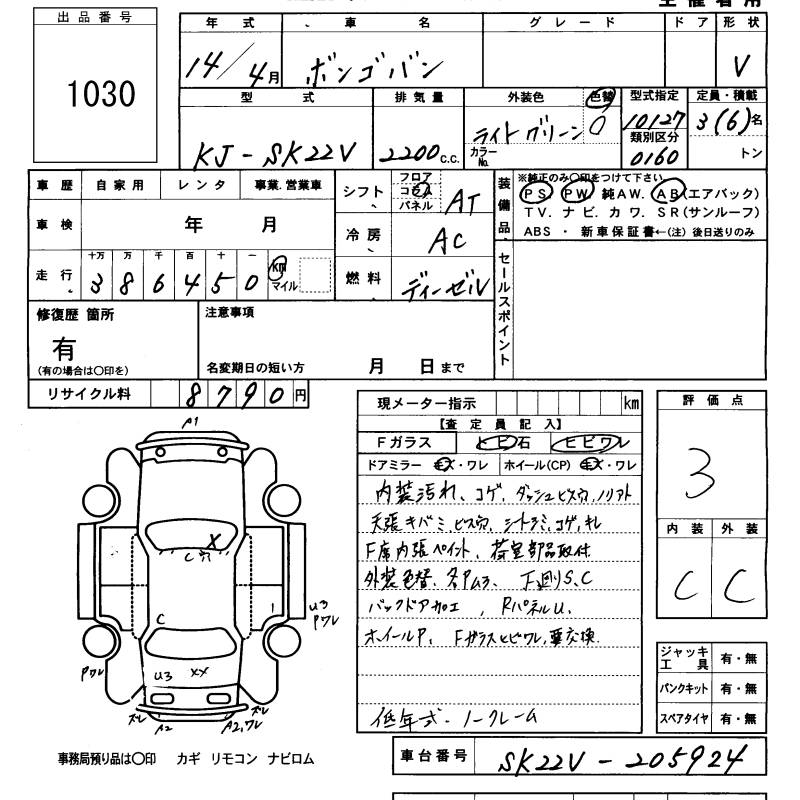 出品番号
1030
年式 車名 グレード ドア 形状
14/4月 ボンゴバン V
型式 排気量 外装色 色替 型式指定 定員・積載
KJ-SK22V 2200c.c. ライトグリーン 10127 3(6)名
カラーNo. 類別区分
0160 トン
車歴 自家用 レンタ 事業.営業車
シフト フロア コラム パネル AT
車検 年 月
冷房 AC
走行 十万 万 千 百 十 一
386450 km マイル
燃料 ディーゼル
装備品
※純正のみ〇印をつけて下さい
PS PW 純AW. AB(エアバック)
TV. ナビ. カワ. SR(サンルーフ)
ABS ・ 新車保証書←(注) 後日送りのみ
セールスポイント
修復歴 箇所
有
(有の場合は〇印を)
注意事項
名変期日の短い方 月 日まで
リサイクル料 8790円
現メーター指示 km
【査定員記入】
Fガラス トビ石 ヒビワレ
ドアミラー キズ・ワレ ホイール(CP) キズ・ワレ
内装汚れ、コゲ、ダッシュビス穴、ノリアト
天張キバミ、ビス穴、シートラミ、コゲ、キレ
F席内張ペイント、荷室部品取付
外装色替、各Pムラ、下廻りS、C
バックドア加工、RパネルU、
ホイールP、Fガラスヒビワレ、要交換
低年式・ノークレーム
評価点
3
内装 外装
C C
A1
X
C穴
C
1
U3
Pワレ
Pワレ
U3 XX
ズレ ズレ
A2 A2,ワレ
ジャッキ工具 有・無
パンクキット 有・無
スペアタイヤ 有・無
事務局預り品は〇印 カギ リモコン ナビロム
車台番号 SK22V-205924